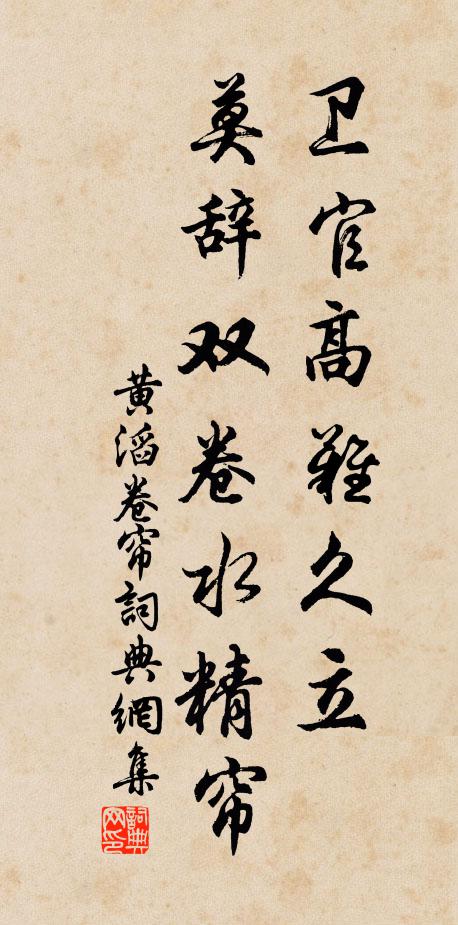 卫官高难久立
莫辞双卷水精帘
黄滔卷帘詞典網集
詞典网印